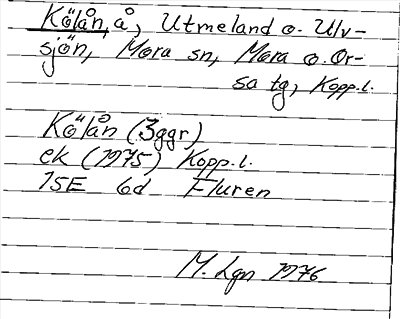 Kölån, å, Utmeland o. Ulv-
sjön, Mora sn, Mora o. Or-
sa tg, Kopp.l.
Kölån (3ggr)
ek (1975) Kopp.l.
15E 6d Fluren
M. Lgn 1976